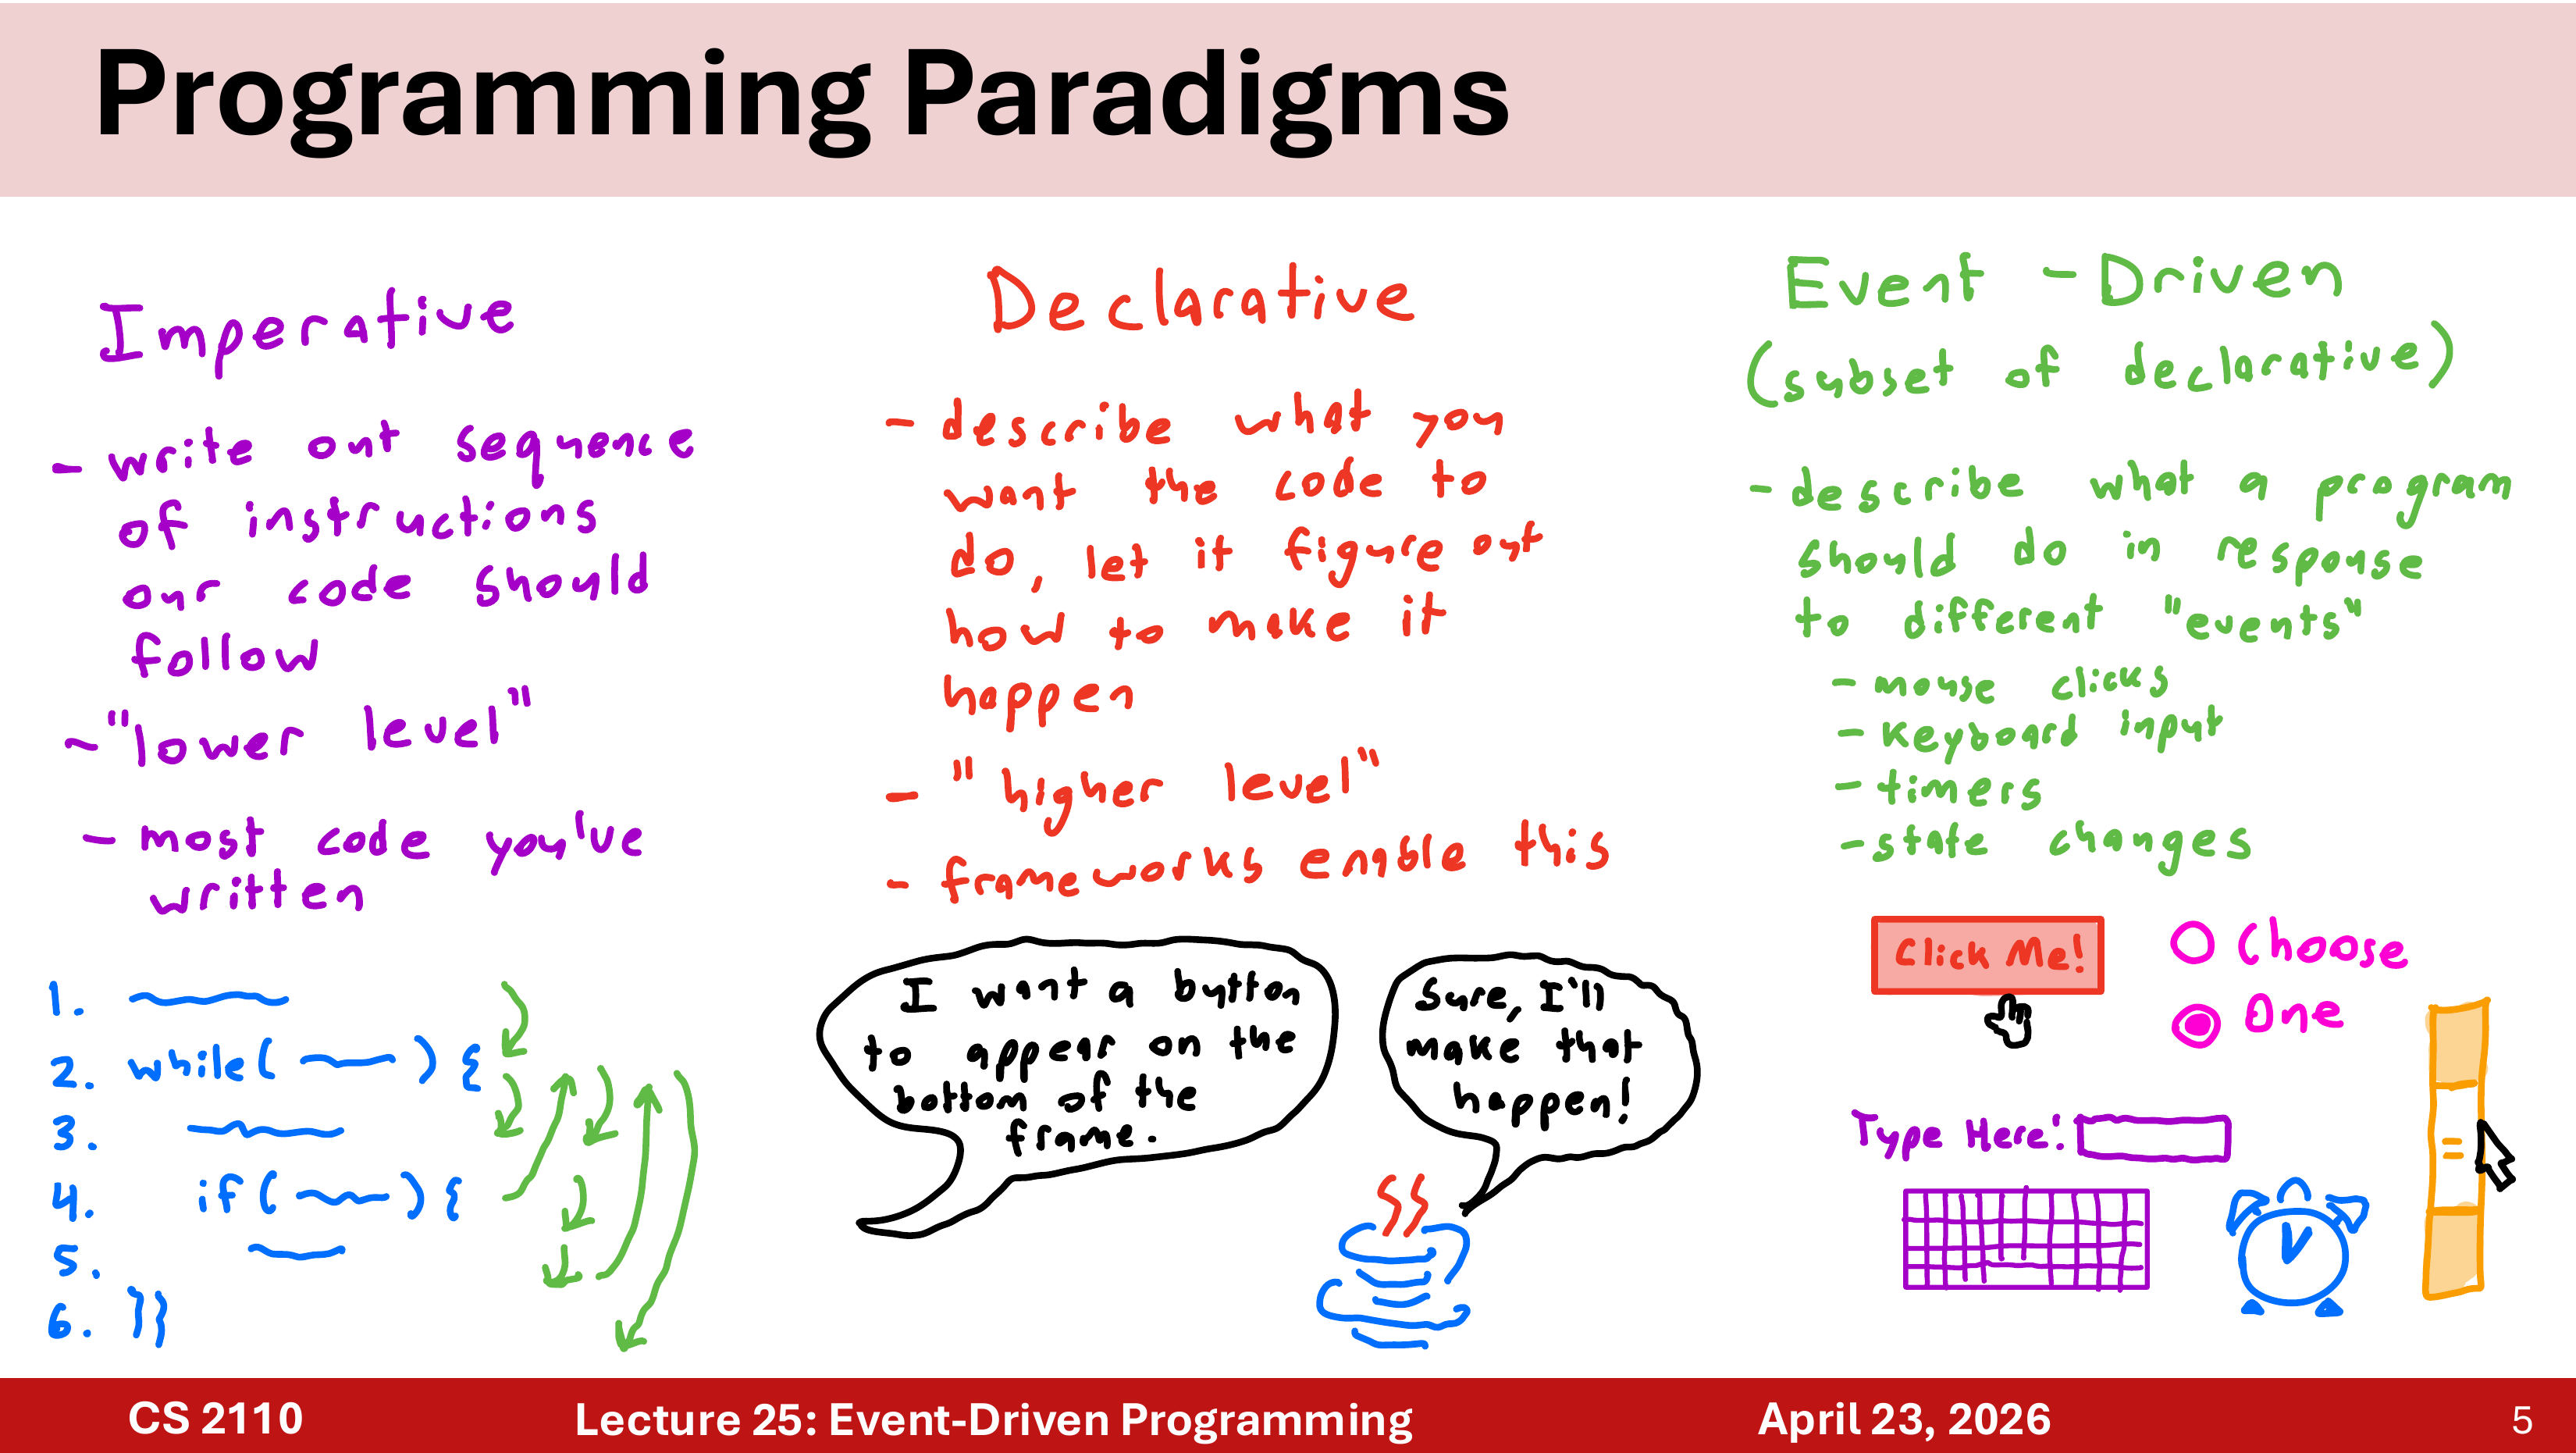 Programming Paradigms
Imperative
- write out sequence
of instructions
our code should
follow
- "lower level"
- most code you've
written
1.
2. while( ) {
3.
4. if( ) {
5.
6. }}
Declarative
- describe what you
want the code to
do, let it figure out
how to make it
happen
- "higher level"
- frameworks enable this
I want a button
to appear on the
bottom of the
frame.
Sure, I'll
make that
happen!
Event-Driven
(subset of declarative)
- describe what a program
should do in response
to different "events"
- mouse clicks
- keyboard input
- timers
- state changes
Click Me!
Choose
One
Type Here:
CS 2110
Lecture 25: Event-Driven Programming
April 23, 2026
5